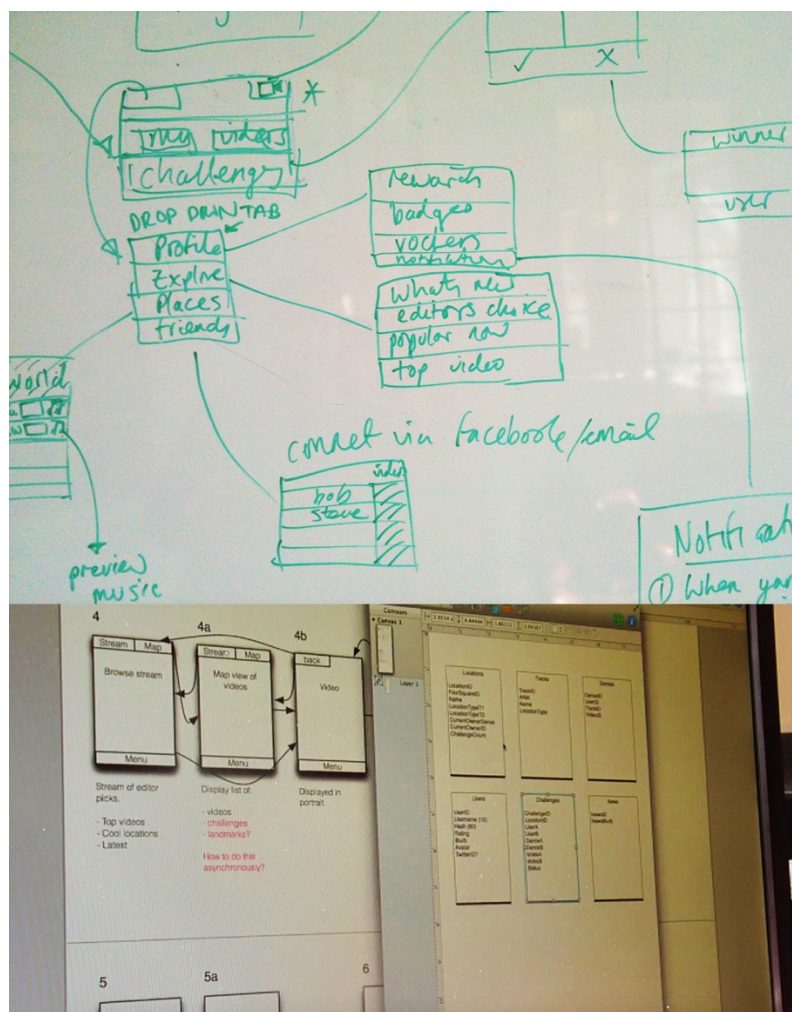 ✓ X
my videos
challenges
DROP DOWN TAB
Profile
Explore
Places
friends
rewards
badges
notification
whats new
editors choice
popular now
top video
winner
user
World
connet via facebook/email
video
bob
steve
preview
music
Notificati
① When you
4
4a
4b
Stream Map
Stream Map
back
Browse stream
Map view of
videos
Video
Menu
Menu
Menu
Stream of editor
picks.
- Top videos
- Cool locations
- Latest
Display list of:
- videos
- challenges
- landmarks?
How to do this
asynchronously?
Displayed in
portrait.
5
5a
6
Canvases
Canvas 1
Layer 1
Locations
LocationID
FourSquareID
Name
LocationType?1
LocationType?2
CurrentOwnerDance
CurrentOwnerID
ChallengeCount
Tracks
TrackID
Artist
Name
LocationType
Dances
DanceID
UserID
TrackID
VideoID
Users
UserID
Username (10)
Hash (80)
Rating
Blurb
Avatar
TwitterID?
Challenges
ChallengeID
LocationID
UserA
UserB
DanceA
DanceB
VotesA
VotesB
Status
News
NewsID
NewsBlurb